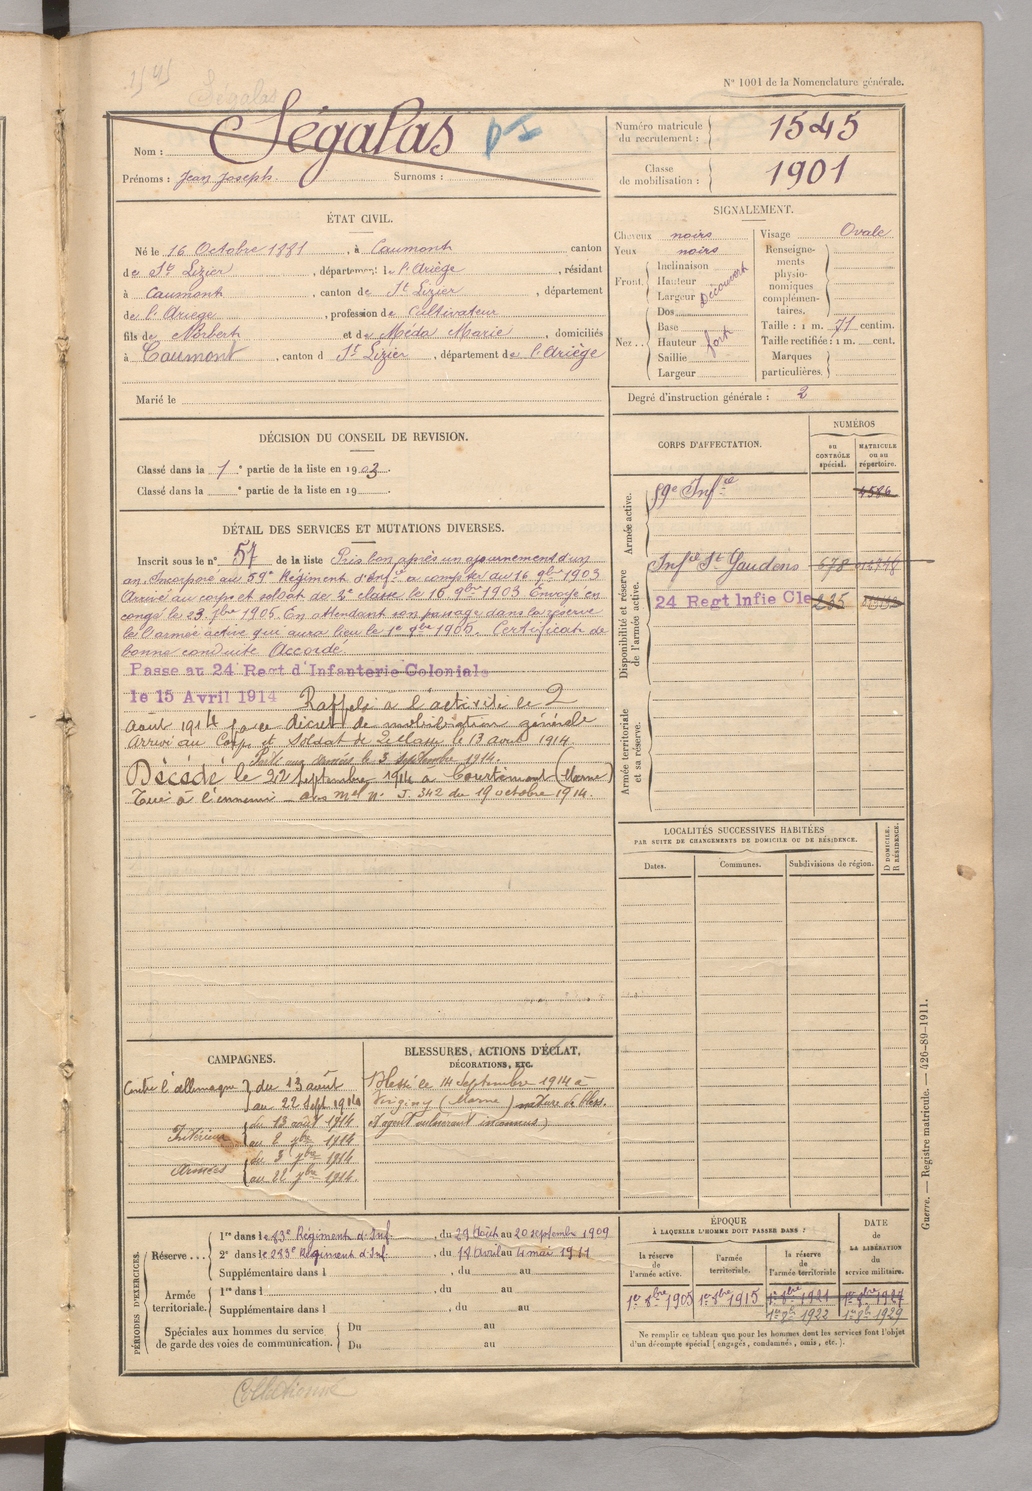 N° 1001 de la Nomenclature générale.
Ségalas
Nom : Ségalas
Prénoms : Jean Joseph. Surnoms :
Numéro matricule du recrutement : 1545
Classe de mobilisation : 1901
ÉTAT CIVIL.
Né le 16 Octobre 1881, à Caumont canton
de St Lizier, département de l'Ariège, résidant
à Caumont, canton de St Lizier, département
de l'Ariège, profession de Cultivateur
fils de Norbert et de Méda Marie, domiciliés
à Caumont, canton d St Lizier, département de l'Ariège
Marié le
SIGNALEMENT.
Cheveux noirs
Yeux noirs
Front. Inclinaison
Hauteur
Largeur
Découvert
Nez.. Dos
Base
Hauteur
Saillie
Largeur
fort
Visage Ovale
Renseignements physionomiques complémentaires.
Taille : 1 m. 71 centim.
Taille rectifiée : 1 m. cent.
Marques particulières.
Degré d'instruction générale : 2
DÉCISION DU CONSEIL DE REVISION.
Classé dans la 1e partie de la liste en 1903.
Classé dans la e partie de la liste en 19
CORPS D'AFFECTATION.
NUMÉROS
au CONTRÔLE spécial.
MATRICULE ou au répertoire.
Armée active.
59e Infie
4584
Disponibilité et réserve de l'armée active.
Infie St Gaudens 678
24 Regt Infie Cle 235
Armée territoriale et sa réserve.
DÉTAIL DES SERVICES ET MUTATIONS DIVERSES.
Inscrit sous le n° 57 de la liste Pris bon après un ajournement d'un
an. Incorporé au 59e Régiment d'Infie a compter du 16 9bre 1903
Arrivé au corps et soldat de 2e classe le 16 9bre 1903. Envoyé en
congé le 23 7bre 1905. En attendant son passage dans la réserve
de l'armée active qui aura lieu le 1er 8bre 1905. Certificat de
bonne conduite Accordé.
Passe au 24 Regt d'Infanterie Coloniale
le 15 Avril 1914 Rappelé à l'activité le 2
Août 1914 par décret de mobilisation générale
Arrivé au Corps et Soldat de 2e classe le 13 août 1914.
Parti aux armées le 3 septembre 1914.
Décédé le 22 septembre 1914 à Courtémont (Marne)
Tué à l'ennemi – avis mel n° J. 342 du 19 octobre 1914.
LOCALITÉS SUCCESSIVES HABITÉES
PAR SUITE DE CHANGEMENTS DE DOMICILE OU DE RÉSIDENCE.
Dates. Communes. Subdivisions de région.
D DOMICILE. R RÉSIDENCE.
CAMPAGNES.
Contre l'allemagne du 13 août
au 22 Sept 1914
Intérieur du 13 août 1914
au 2 7bre 1914
Armées du 3 7bre 1914
au 22 7bre 1914.
BLESSURES, ACTIONS D'ÉCLAT,
DÉCORATIONS, ETC.
Blessé le 14 Septembre 1914 à
Virginy (Marne) nature de bless.
et agent vulnérant inconnus)
PÉRIODES D'EXERCICES.
Réserve...
1re dans le 83e Régiment d'Inf., du 29 Août au 20 septembre 1909
2e dans le 283e Régiment d'Inf., du 18 Avril au 4 mai 1911
Supplémentaire dans l, du au
Armée territoriale.
1re dans l, du au
Supplémentaire dans l, du au
Spéciales aux hommes du service de garde des voies de communication.
Du au
Du au
ÉPOQUE
À LAQUELLE L'HOMME DOIT PASSER DANS :
la réserve de l'armée active.
l'armée territoriale.
la réserve de l'armée territoriale
DATE de LA LIBÉRATION du service militaire.
1er 8bre 1905 1er 8bre 1915 1er 8bre 1921 1er 8bre 1927
1922 1929
Ne remplir ce tableau que pour les hommes dont les services font l'objet
d'un décompte spécial (engagés, condamnés, omis, etc.).
Guerre. — Registre matricule. — 426-89-1911.
Collationné